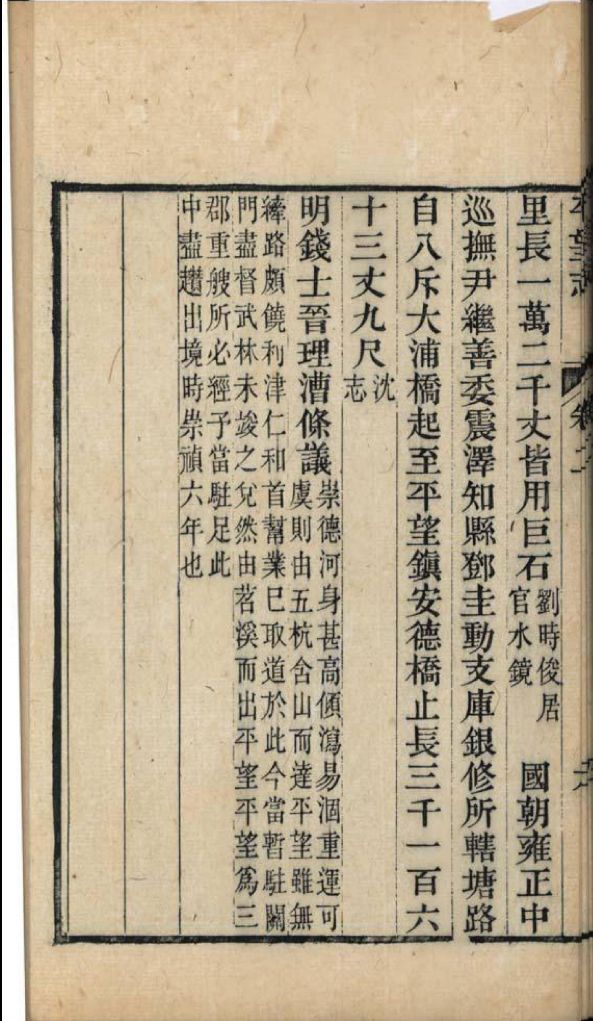 平望志 卷二 六
里長一萬二千丈皆用巨石劉時俊居官水鏡 國朝雍正中
巡撫尹繼善委震澤知縣鄧圭動支庫銀修所轄塘路
自八斥大浦橋起至平望鎮安德橋止長三千一百六
十三丈九尺沈志
明錢士晉理漕條議崇德河身甚高傾瀉易涸重運可
虞則由五杭含山而達平望雖無
縴路頗饒利津仁和首幫業已取道於此今當暫駐關
門盡督武林未竣之兌然由苕溪而出平望平望爲三
郡重艘所必經予當駐足此
中盡趲出境時崇禎六年也